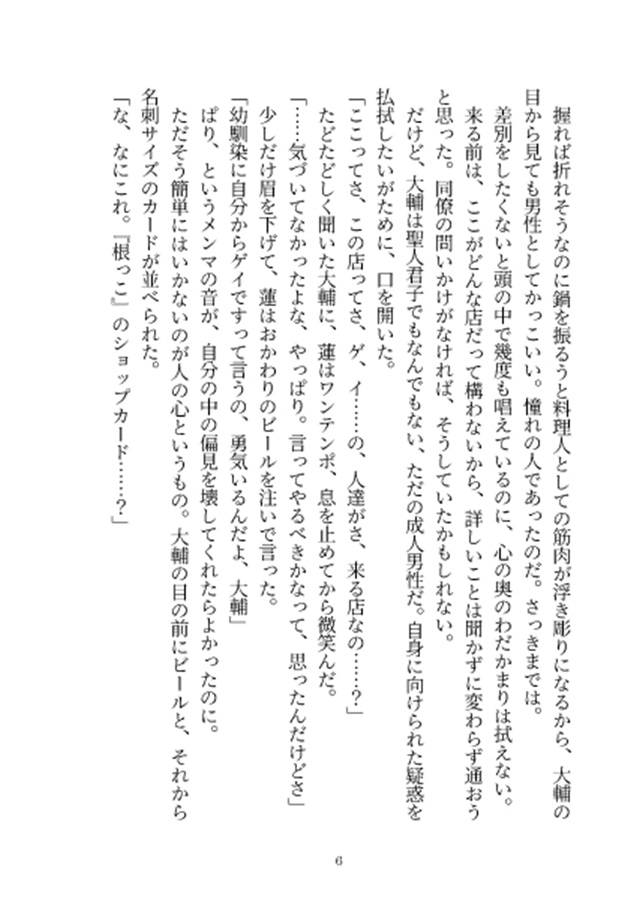 握れば折れそうなのに鍋を振るうと料理人としての筋肉が浮き彫りになるから、大輔の
目から見ても男性としてかっこいい。憧れの人であったのだ。さっきまでは。
差別をしたくないと頭の中で幾度も唱えているのに、心の奥のわだかまりは拭えない。
来る前は、ここがどんな店だって構わないから、詳しいことは聞かずに変わらず通おう
と思った。同僚の問いかけがなければ、そうしていたかもしれない。
だけど、大輔は聖人君子でもなんでもない、ただの成人男性だ。自身に向けられた疑惑を
払拭したいがために、口を開いた。
「ここってさ、この店ってさ、ゲ、イ……の、人達がさ、来る店なの……？」
たどたどしく聞いた大輔に、蓮はワンテンポ、息を止めてから微笑んだ。
「……気づいてなかったよな、やっぱり。言ってやるべきかなって、思ったんだけどさ」
少しだけ眉を下げて、蓮はおかわりのビールを注いで言った。
「幼馴染に自分からゲイですって言うの、勇気いるんだよ、大輔」
ぱり、というメンマの音が、自分の中の偏見を壊してくれたらよかったのに。
ただそう簡単にはいかないのが人の心というもの。大輔の目の前にビールと、それから
名刺サイズのカードが並べられた。
「な、なにこれ。『根っこ』のショップカード……？」
6